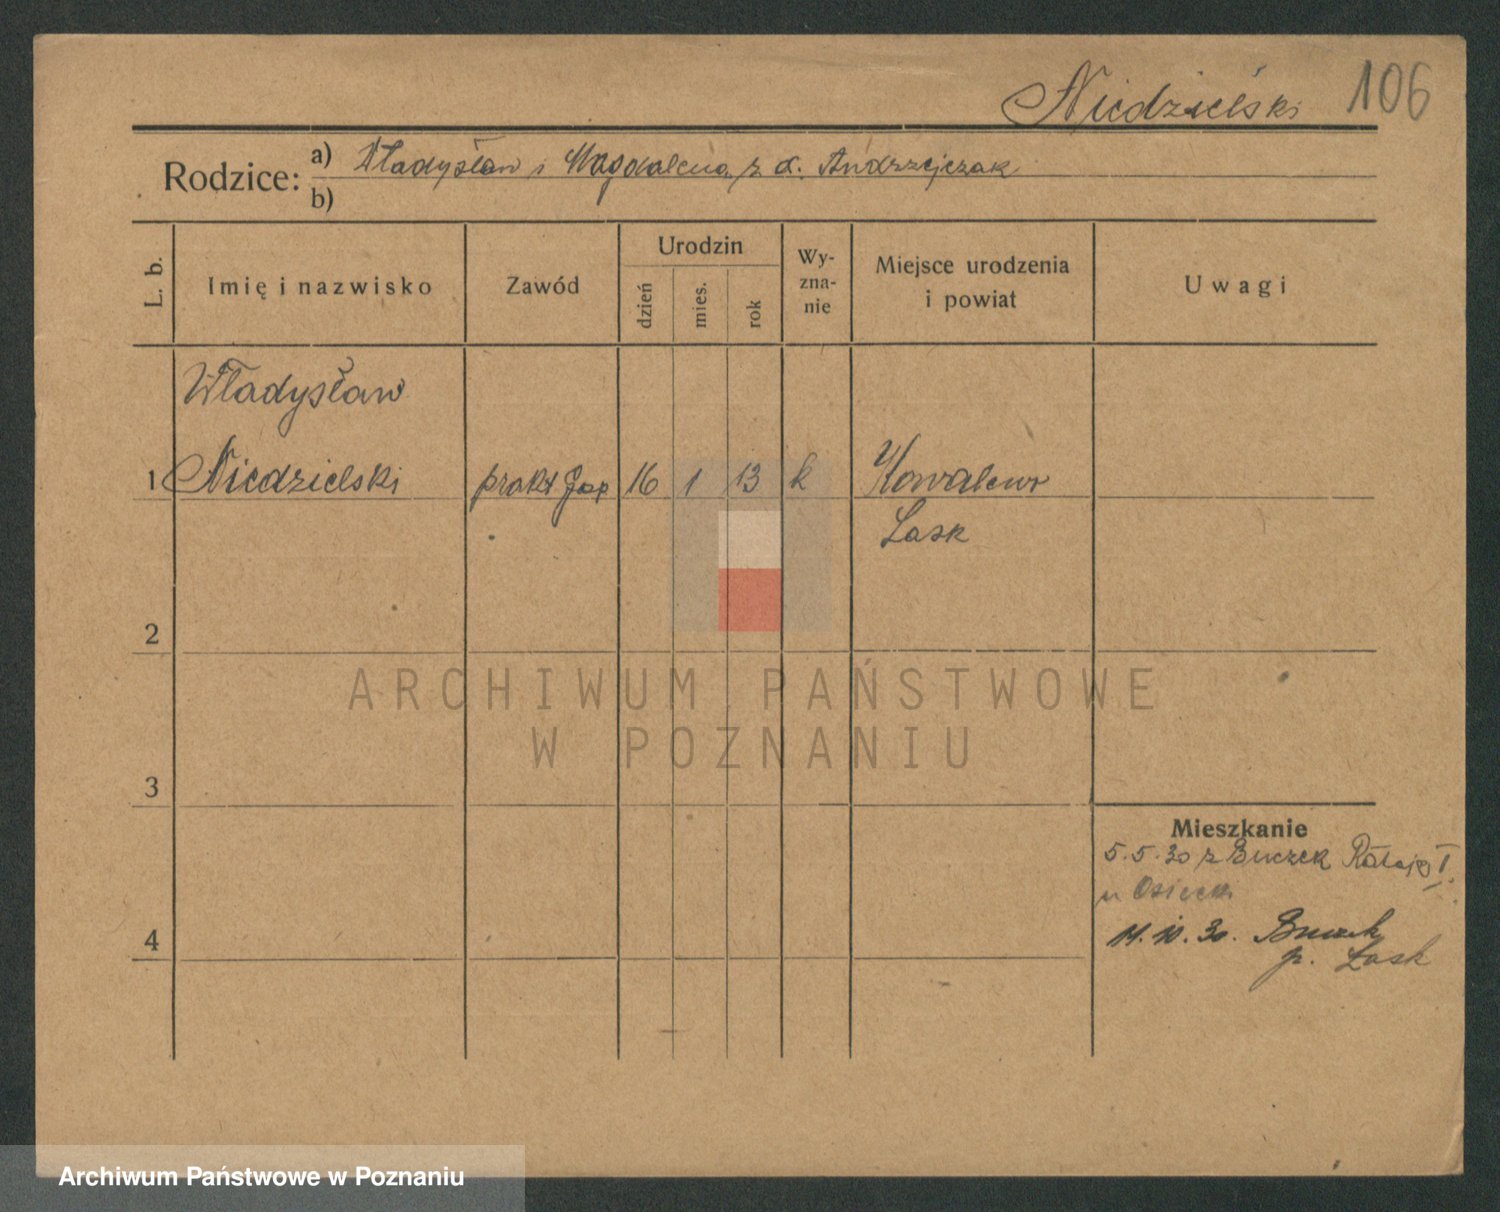 Niedzielski 106
Rodzice: a) Władysław i Magdalena z d. Andrzejczak
b)
L. b. Imię i nazwisko Zawód Urodzin dzień mies. rok Wyznanie Miejsce urodzenia i powiat Uwagi
Władysław
1 Niedzielski prakt 16 1 13 k Kowalew
Łask
2
ARCHIWUM PAŃSTWOWE
W POZNANIU
3
Mieszkanie
5.5.30 z Buczek Rataje I
u Osieck
4 14.10.30. Buczek
p. Łask
Archiwum Państwowe w Poznaniu